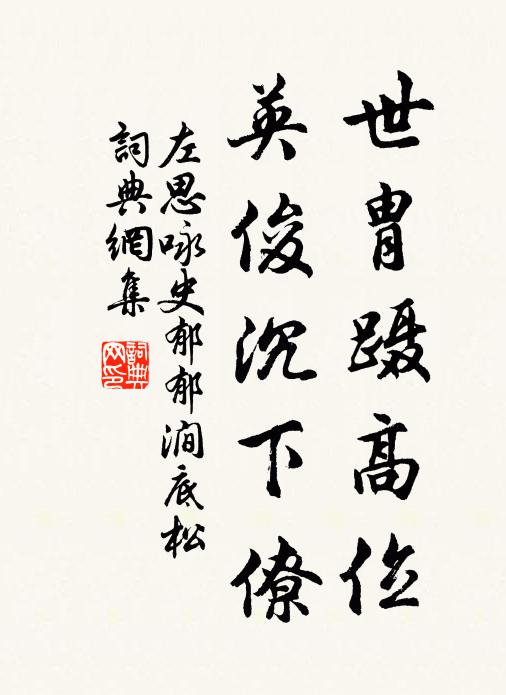 世胄蹑高位
英俊沉下僚
左思咏史郁郁涧底松
詞典網集
詞典网印